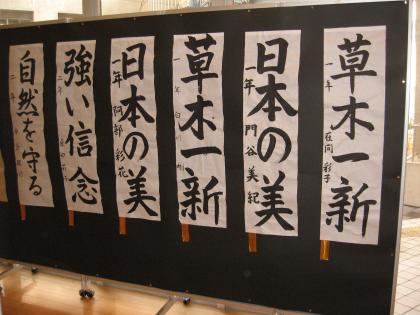 草木一新
一年 在間 彩子
日本の美
一年 門谷 美紀
草木一新
一年
日本の美
一年 阿部 彩花
強い信念
二年
自然を守る
二年